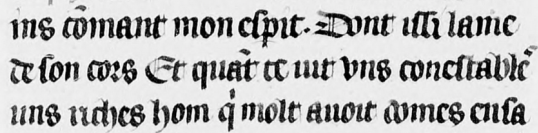 ins cōmant mon esp̄it. Dont issi lame
de son cors Et quāt ce uit vns conestable᷑
uns riches hom q̍ molt auoit domes ensa